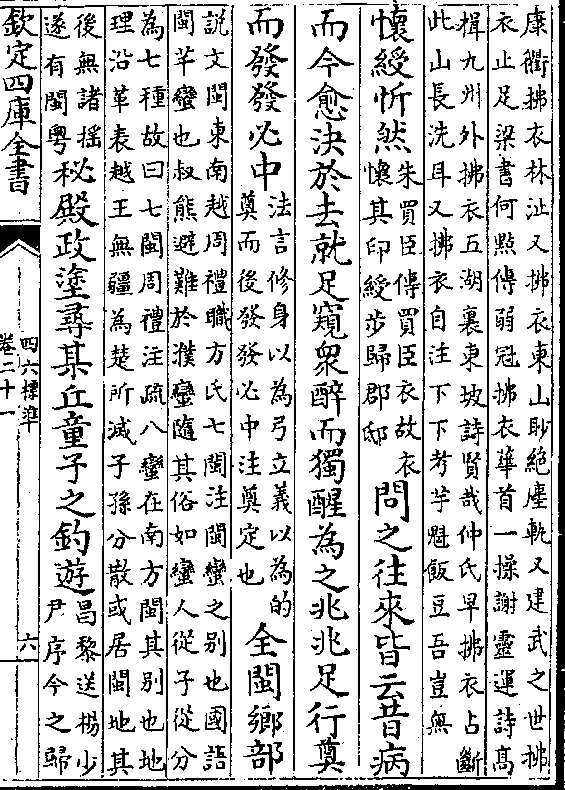 康衢拂衣林沚又拂衣東山眇絕塵軌又建武之世拂
衣止足梁書何點傳弱冠拂衣華首一操謝靈運詩高
揖九州外拂衣五湖裏東坡詩賢哉仲氏早拂衣占斷
此山長洗耳又拂衣自注下下考芋魁飯豆吾豈無
懷綬忻然
朱買臣傳買臣衣故衣
懷其印綬步歸郡邸
問之往來皆云昔病
而今愈決於去就足窺衆醉而獨醒為之兆兆足行奠
而發發必中
法言修身以為弓立義以為的
奠而後發發必中注奠定也
全閩鄉部
説文閩東南越周禮職方氏七閩注閩蠻之别也國語
閩芊蠻也叔熊避難於濮蠻隨其俗如蠻人從子從分
為七種故曰七閩周禮注疏八蠻在南方閩其别也地
理沿革表越王無疆為楚所滅子孫分散或居閩地其
後無諸揺
遂有閩粤
秘殿政塗尋某丘童子之釣遊
昌黎送楊少
尹序今之歸
欽定四庫全書
四六標準
卷二十一
六